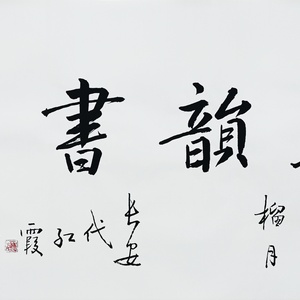 韻書
榴月
长安
代红霞